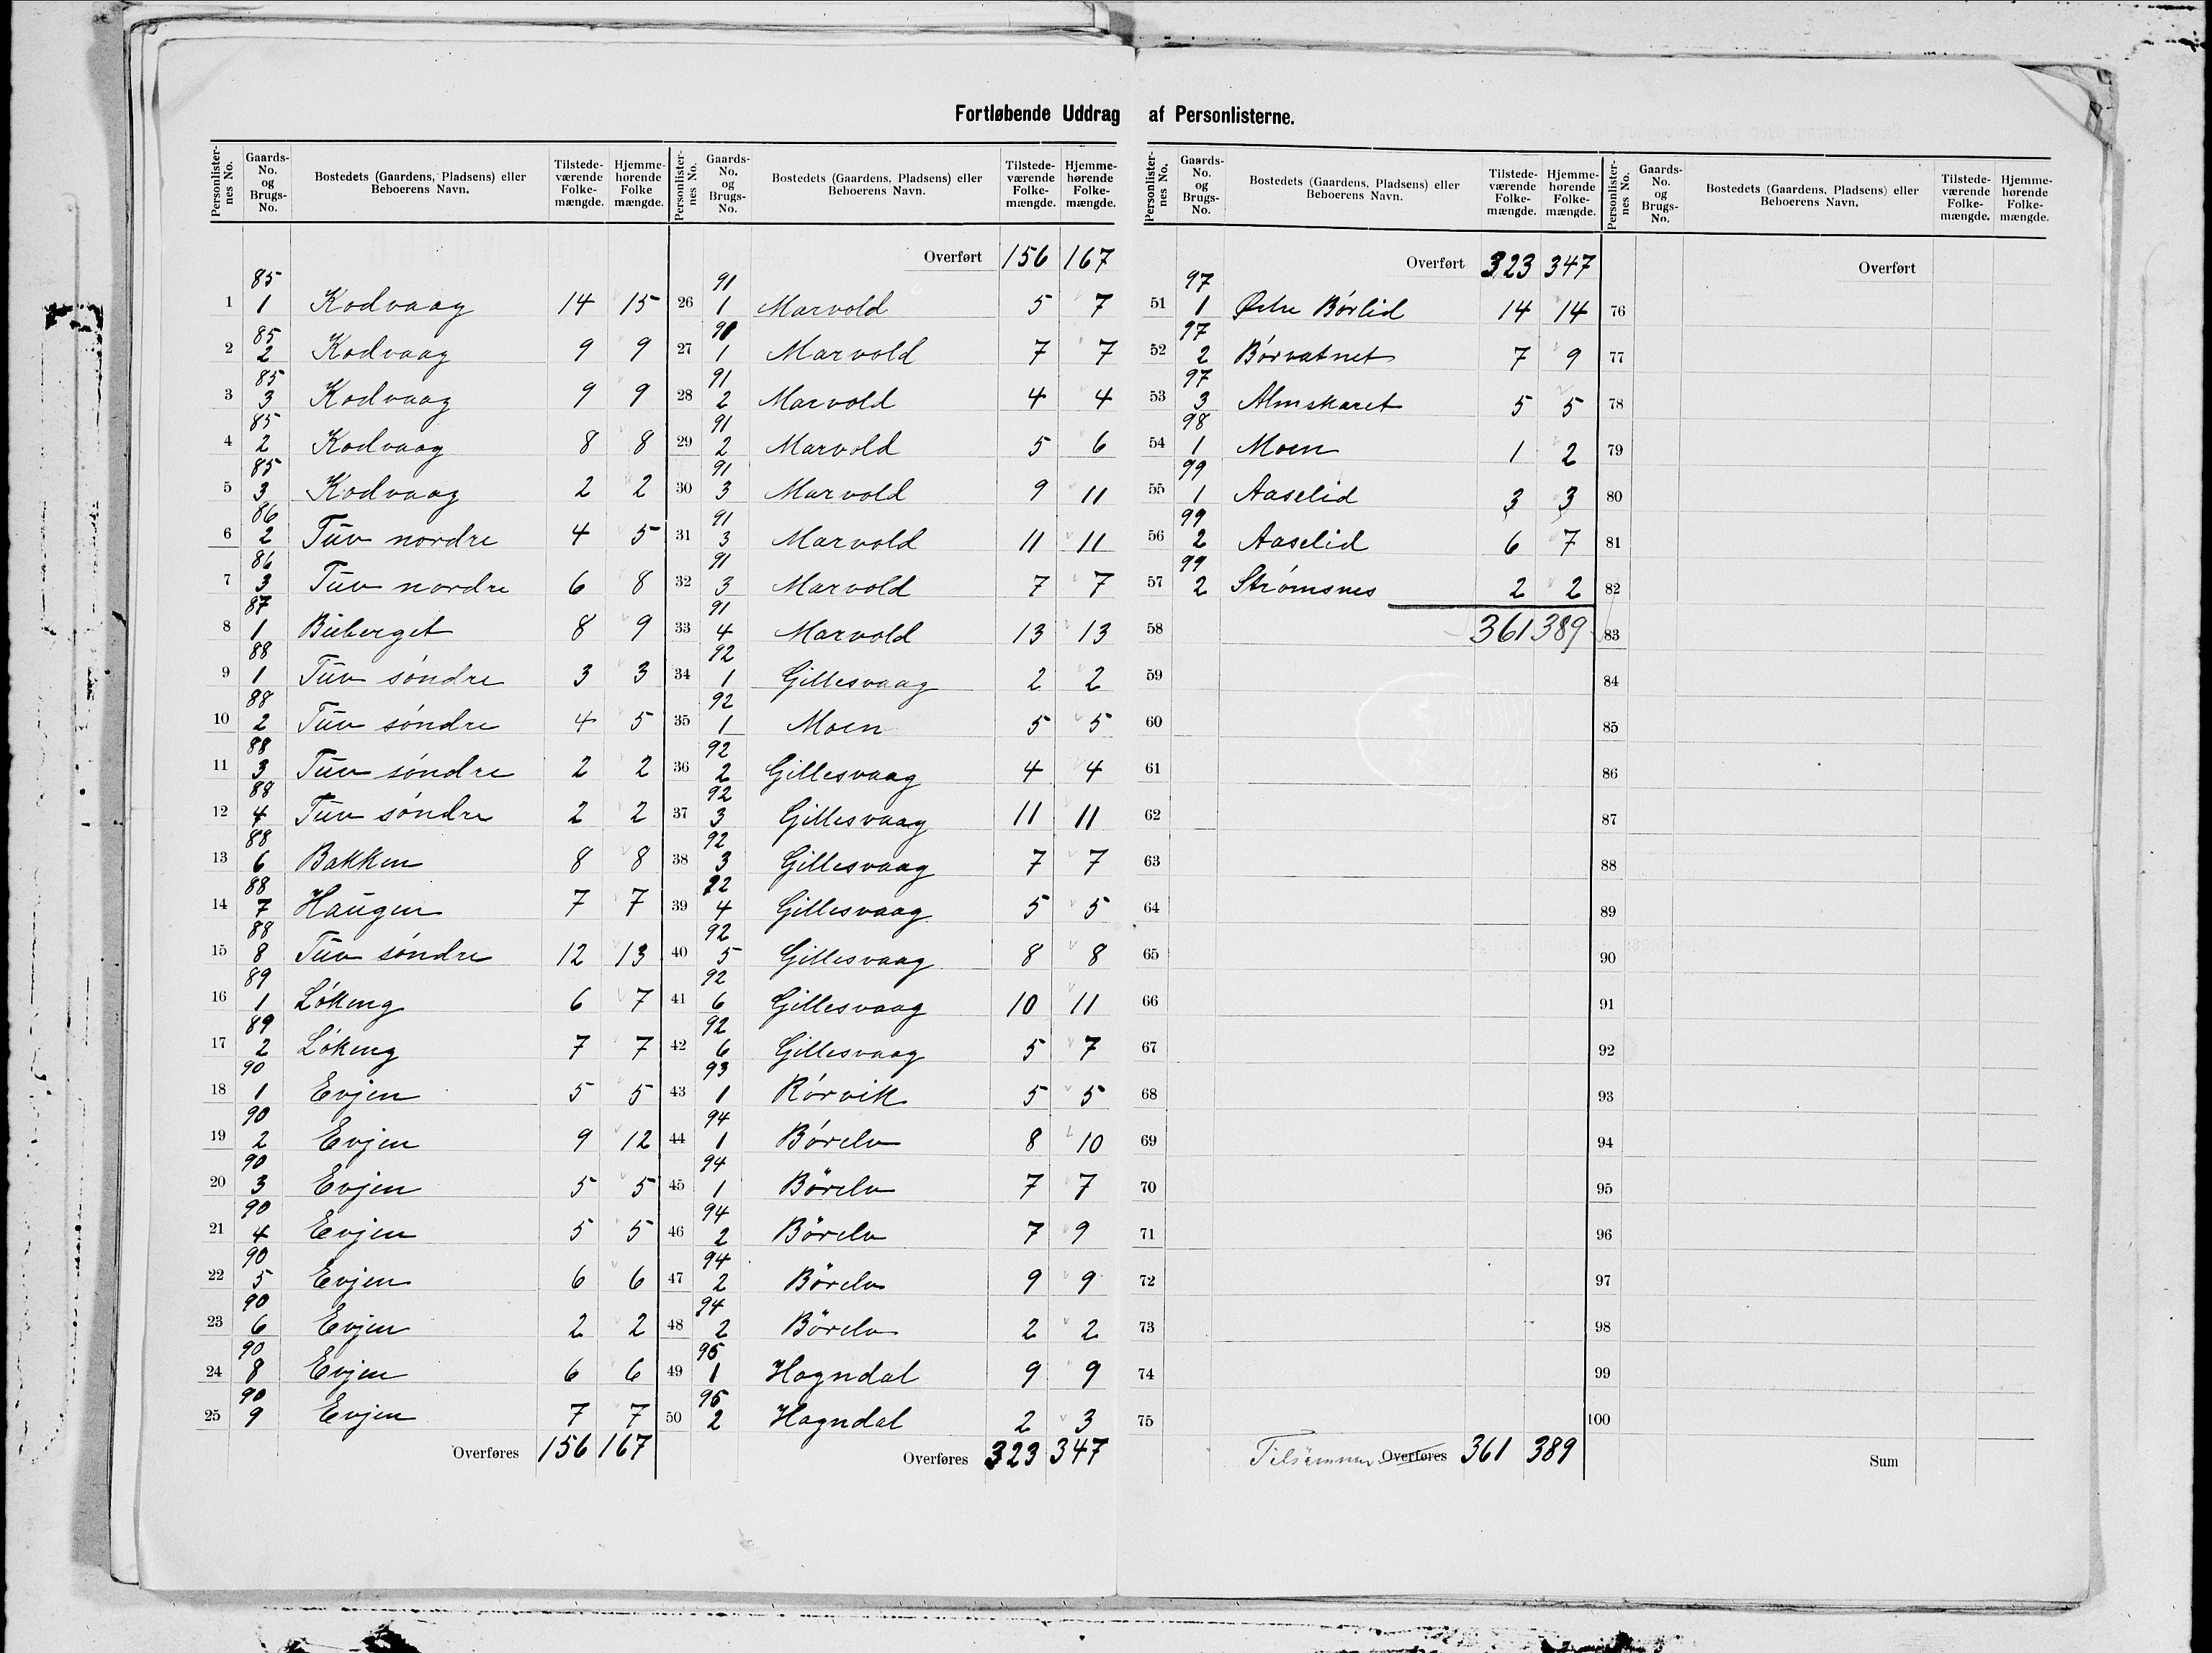 Fortløbende Uddrag af Personlisterne.
Personlister-nes No. Gaards-No. og Brugs-No. Bostedets (Gaardens, Pladsens) eller Beboerens Navn. Tilstede-værende Folke-mængde. Hjemme-hørende Folke mængde.
1 85 1 Kodvaag 14 15
2 85 2 Kodvaag 9 9
3 85 3 Kodvaag 9 9
4 85 2 Kodvaag 8 8
5 85 3 Kodvaag 2 2
6 86 2 Tuv nordre 4 5
7 86 3 Tuv nordre 6 8
8 87 1 Bieberget 8 9
9 88 1 Tuv søndre 3 3
10 88 2 Tuv søndre 4 5
11 88 3 Tuv søndre 2 2
12 88 4 Tuv søndre 2 2
13 88 6 Bakken 8 8
14 88 7 Haugen 7 7
15 88 8 Tuv søndre 12 13
16 89 1 Løkeng 6 7
17 89 2 Løkeng 7 7
18 90 1 Evjen 5 5
19 90 2 Evjen 9 12
20 90 3 Evjen 5 5
21 90 4 Evjen 5 5
22 90 5 Evjen 6 6
23 90 6 Evjen 2 2
24 90 8 Evjen 6 6
25 90 9 Evjen 7 7
Overføres 156 167
Personlister-nes No. Gaards-No. og Brugs-No. Bostedets (Gaardens, Pladsens) eller Beboerens Navn. Tilstede-værende Folke-mængde. Hjemme-hørende Folke-mængde.
Overført 156 167
26 91 1 Marvold 5 7
27 91 1 Marvold 7 7
28 91 2 Marvold 4 4
29 91 2 Marvold 5 6
30 91 3 Marvold 9 11
31 91 3 Marvold 11 11
32 91 3 Marvold 7 7
33 91 4 Marvold 13 13
34 92 1 Gillesvaag 2 2
35 92 1 Moen 5 5
36 92 2 Gillesvaag 4 4
37 92 3 Gillesvaag 11 11
38 92 3 Gillesvaag 7 7
39 92 4 Gillesvaag 5 5
40 92 5 Gillesvaag 8 8
41 92 6 Gillesvaag 10 11
42 92 6 Gillesvaag 5 7
43 93 1 Rørvik 5 5
44 94 1 Børelv 8 10
45 94 1 Börelv 7 7
46 94 2 Börelv 7 9
47 94 2 Börelv 9 9
48 94 2 Börelv 2 2
49 95 1 Hogndal 9 9
50 95 2 Hogndal 2 3
Overføres 323 347
Personlister-nes No. Gaards-No. og Brugs-No. Bostedets (Gaardens, Pladsens) eller Beboerens Navn. Tilstede-værende Folke-mængde. Hjemme-hørende Folke-mængde.
Overført 323 347
51 97 1 Øvre Børlid 14 14
52 97 2 Børvatnet 7 9
53 97 3 Almskaret 5 5
54 98 1 Moen 1 2
55 99 1 Aaselid 3 3
56 99 2 Aaselid 6 7
57 99 2 Strømsnes 2 2
58 361 389
59
60
61
62
63
64
65
66
67
68
69
70
71
72
73
74
75
Tilsammen Overføres 361 389
Personlister-nes No. Gaards-No. og Brugs-No. Bostedets (Gaardens, Pladsens) eller Beboerens Navn. Tilstede-værende Folke-mængde. Hjemme-hørende Folke-mængde.
Overført
76
77
78
79
80
81
82
83
84
85
86
87
88
89
90
91
92
93
94
95
96
97
98
99
100
Sum